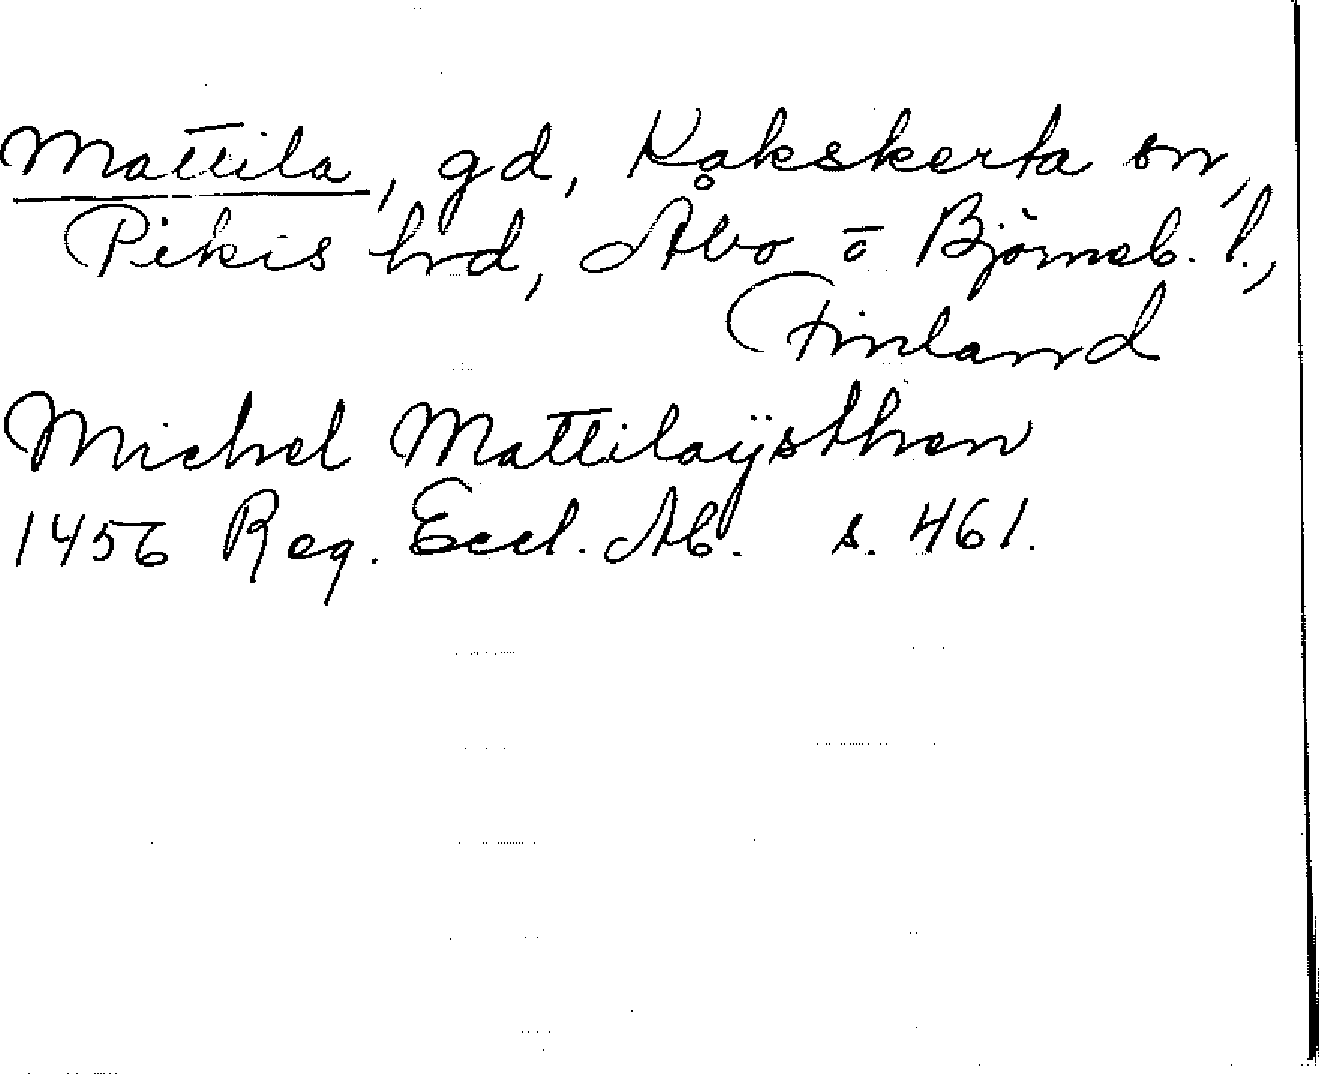 Mattila, gd, Kakskerta sn,
Pikis hrd, Åbo o Björneb. l.,
Finland
Michel Mattilaÿsthen
1456 Reg. Eccl. Ab. s. 461.